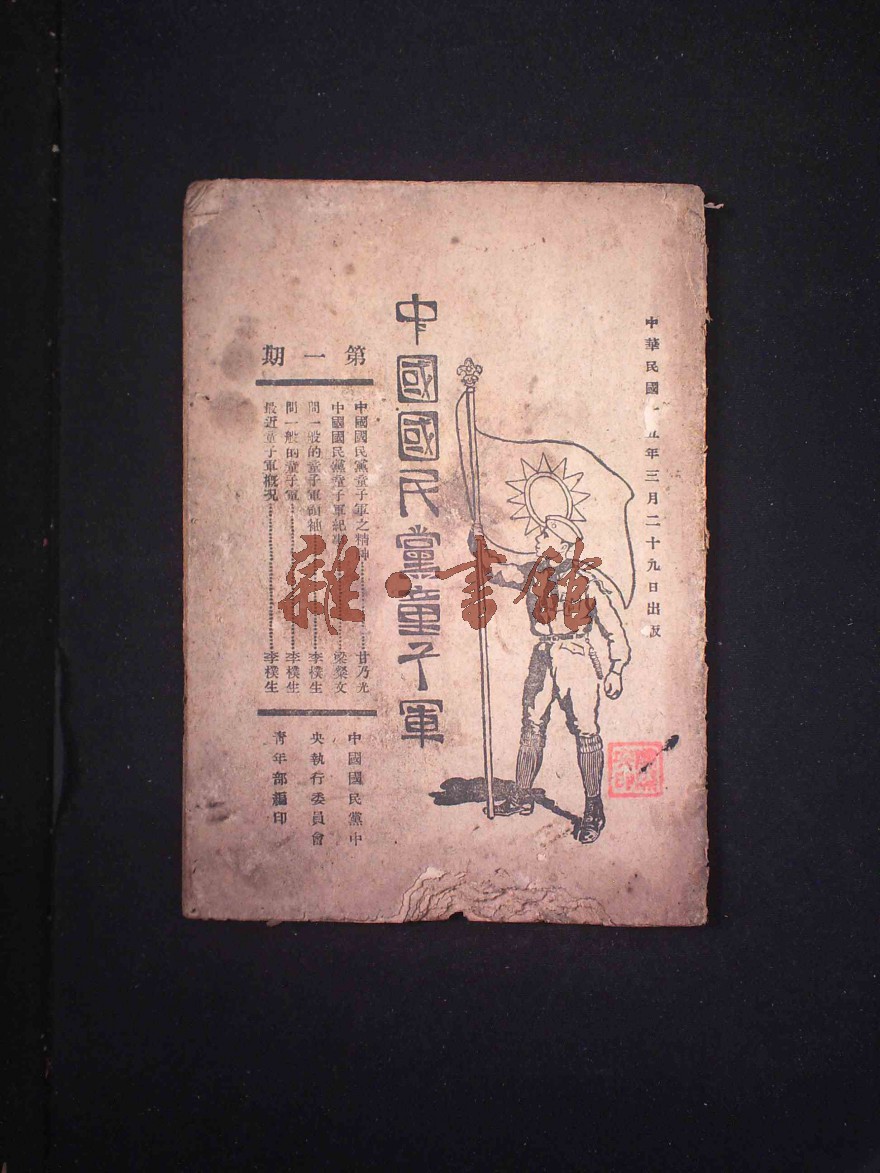 中華民國十五年三月二十九日出版
中國國民黨童子軍
第一期
中國國民黨童子軍之精神…………甘乃光
中國國民黨童子軍紀…………梁燊文
問一般的童子軍領袖…………李樸生
問一般的童子軍…………李樸生
最近童子軍概況…………李樸生
中國國民黨中
央執行委員會
青年部編印
雜·書館